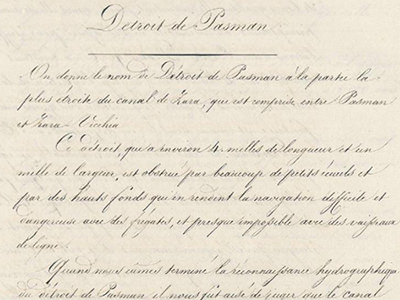 Détroit de Pasman
On donne le nom de Détroit de Pasman à la partie la
plus étroite du canal de Zara, que est comprise entre Pasman
et Zara Vecchia
Ce détroit, qui a environ 4 milles de longueur et un
mille de largeur, est obstrué par beaucoup de petits écueils et
par des hauts fonds qui en rendent la navigation difficile et
dangereuse avec des frégates, et presque impossible avec des vaisseaux
de ligne.
Quand nous eûmes terminé la reconnaissance hydrographique
du détroit de Pasman il nous fut aisé de juger que le canal